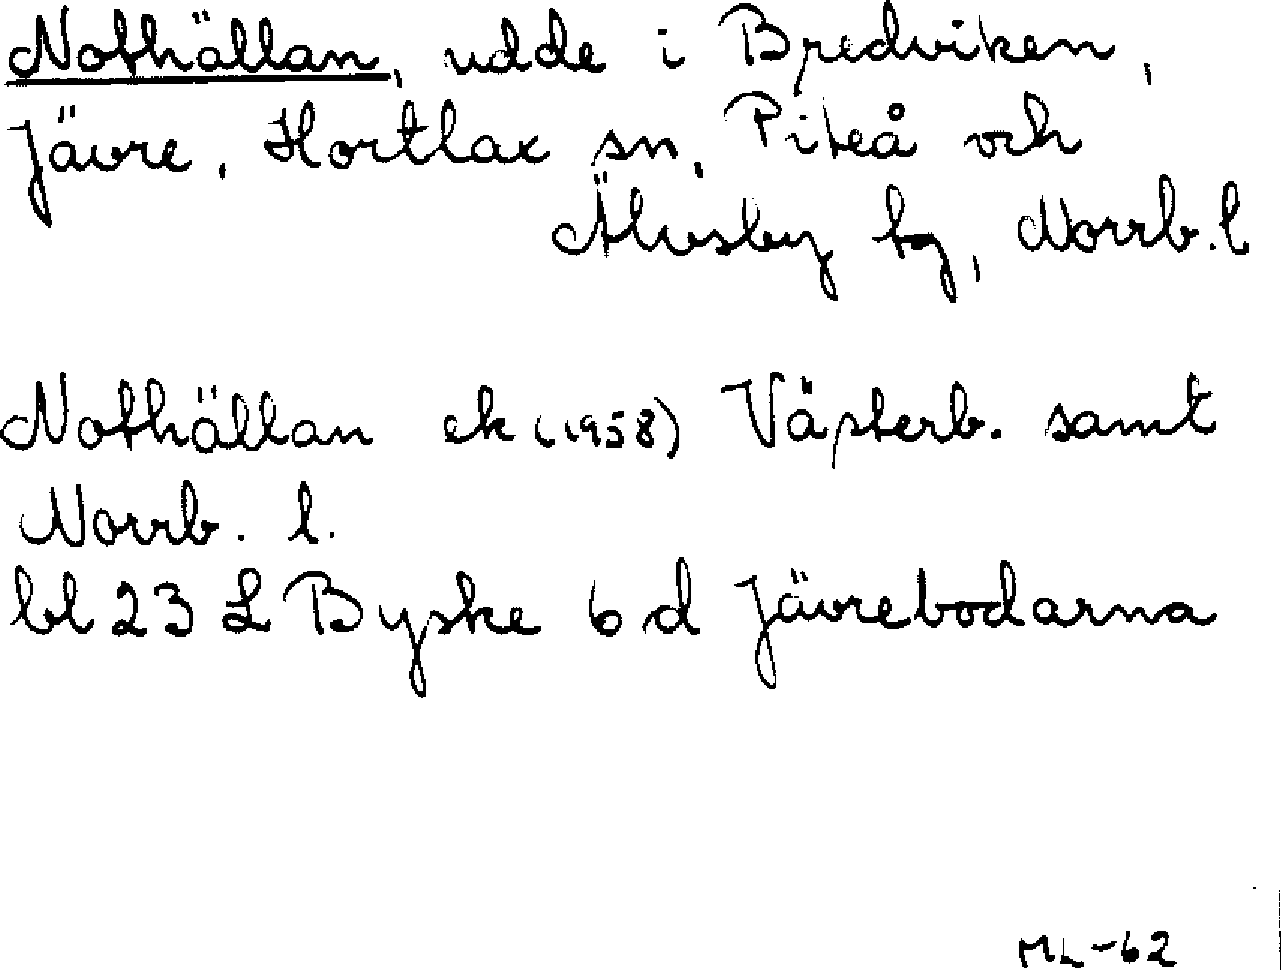 Nothällan, udde i Bredviken,
Jävre, Hortlax sn, Piteå och
Älvsby tg, Norrb. l
Nothällan ek (1958) Västerb. samt
Norrb. l.
bl 23 L Byske 6 d Jävrebodarna
ML-62